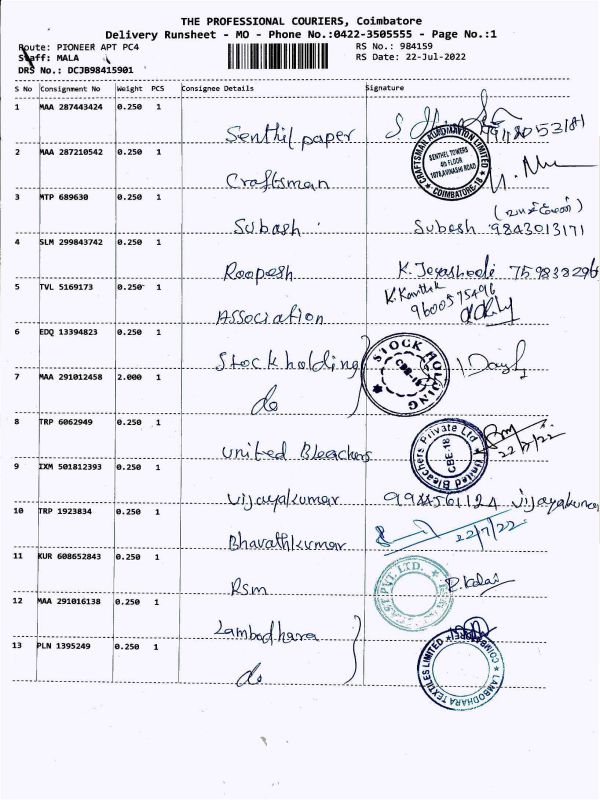 THE PROFESSIONAL COURIERS, Coimbatore
Delivery Runsheet - MO - Phone No.:0422-3505555 - Page No.:1
Route: PIONEER APT PC4 RS No.: 984159
Staff: MALA RS Date: 22-Jul-2022
DRS No.: DCJB98415901
S No Consignment No Weight PCS Consignee Details Signature
1 MAA 287443424 0.250 1
Senthil paper
2 MAA 287210542 0.250 1
CRAFTSMAN AUTOMATION LIMITED
SENTHEL TOWERS
4th FLOOR
1078,AVINASHI ROAD
COIMBATORE-18
Craftsman
3 MTP 689630 0.250 1
Subash Subash 9843013171
4 SLM 299843742 0.250 1
Roopesh
5 TVL 5169173 0.250 1
K. Karthik
9600575496
Association
6 EDQ 13394823 0.250 1
Stock holding
STOCK HOLDING
CBE-18
7 MAA 291012458 2.000 1
do
8 TRP 6062949 0.250 1
United Bleachers
United Bleachers Private Ltd
CBE-18
22/7/22
9 IXM 501812393 0.250 1
Vijayakumar 9944561124 Vijayakumar
10 TRP 1923834 0.250 1
22/7/22
Bharathkumar
11 KUR 608652843 0.250 1
Rsm
R. Kalai
12 MAA 291016138 0.250 1
Lambodhara
13 PLN 1395249 0.250 1
do
LAMBODHARA TEXTILES LIMITED
COIMBATORE